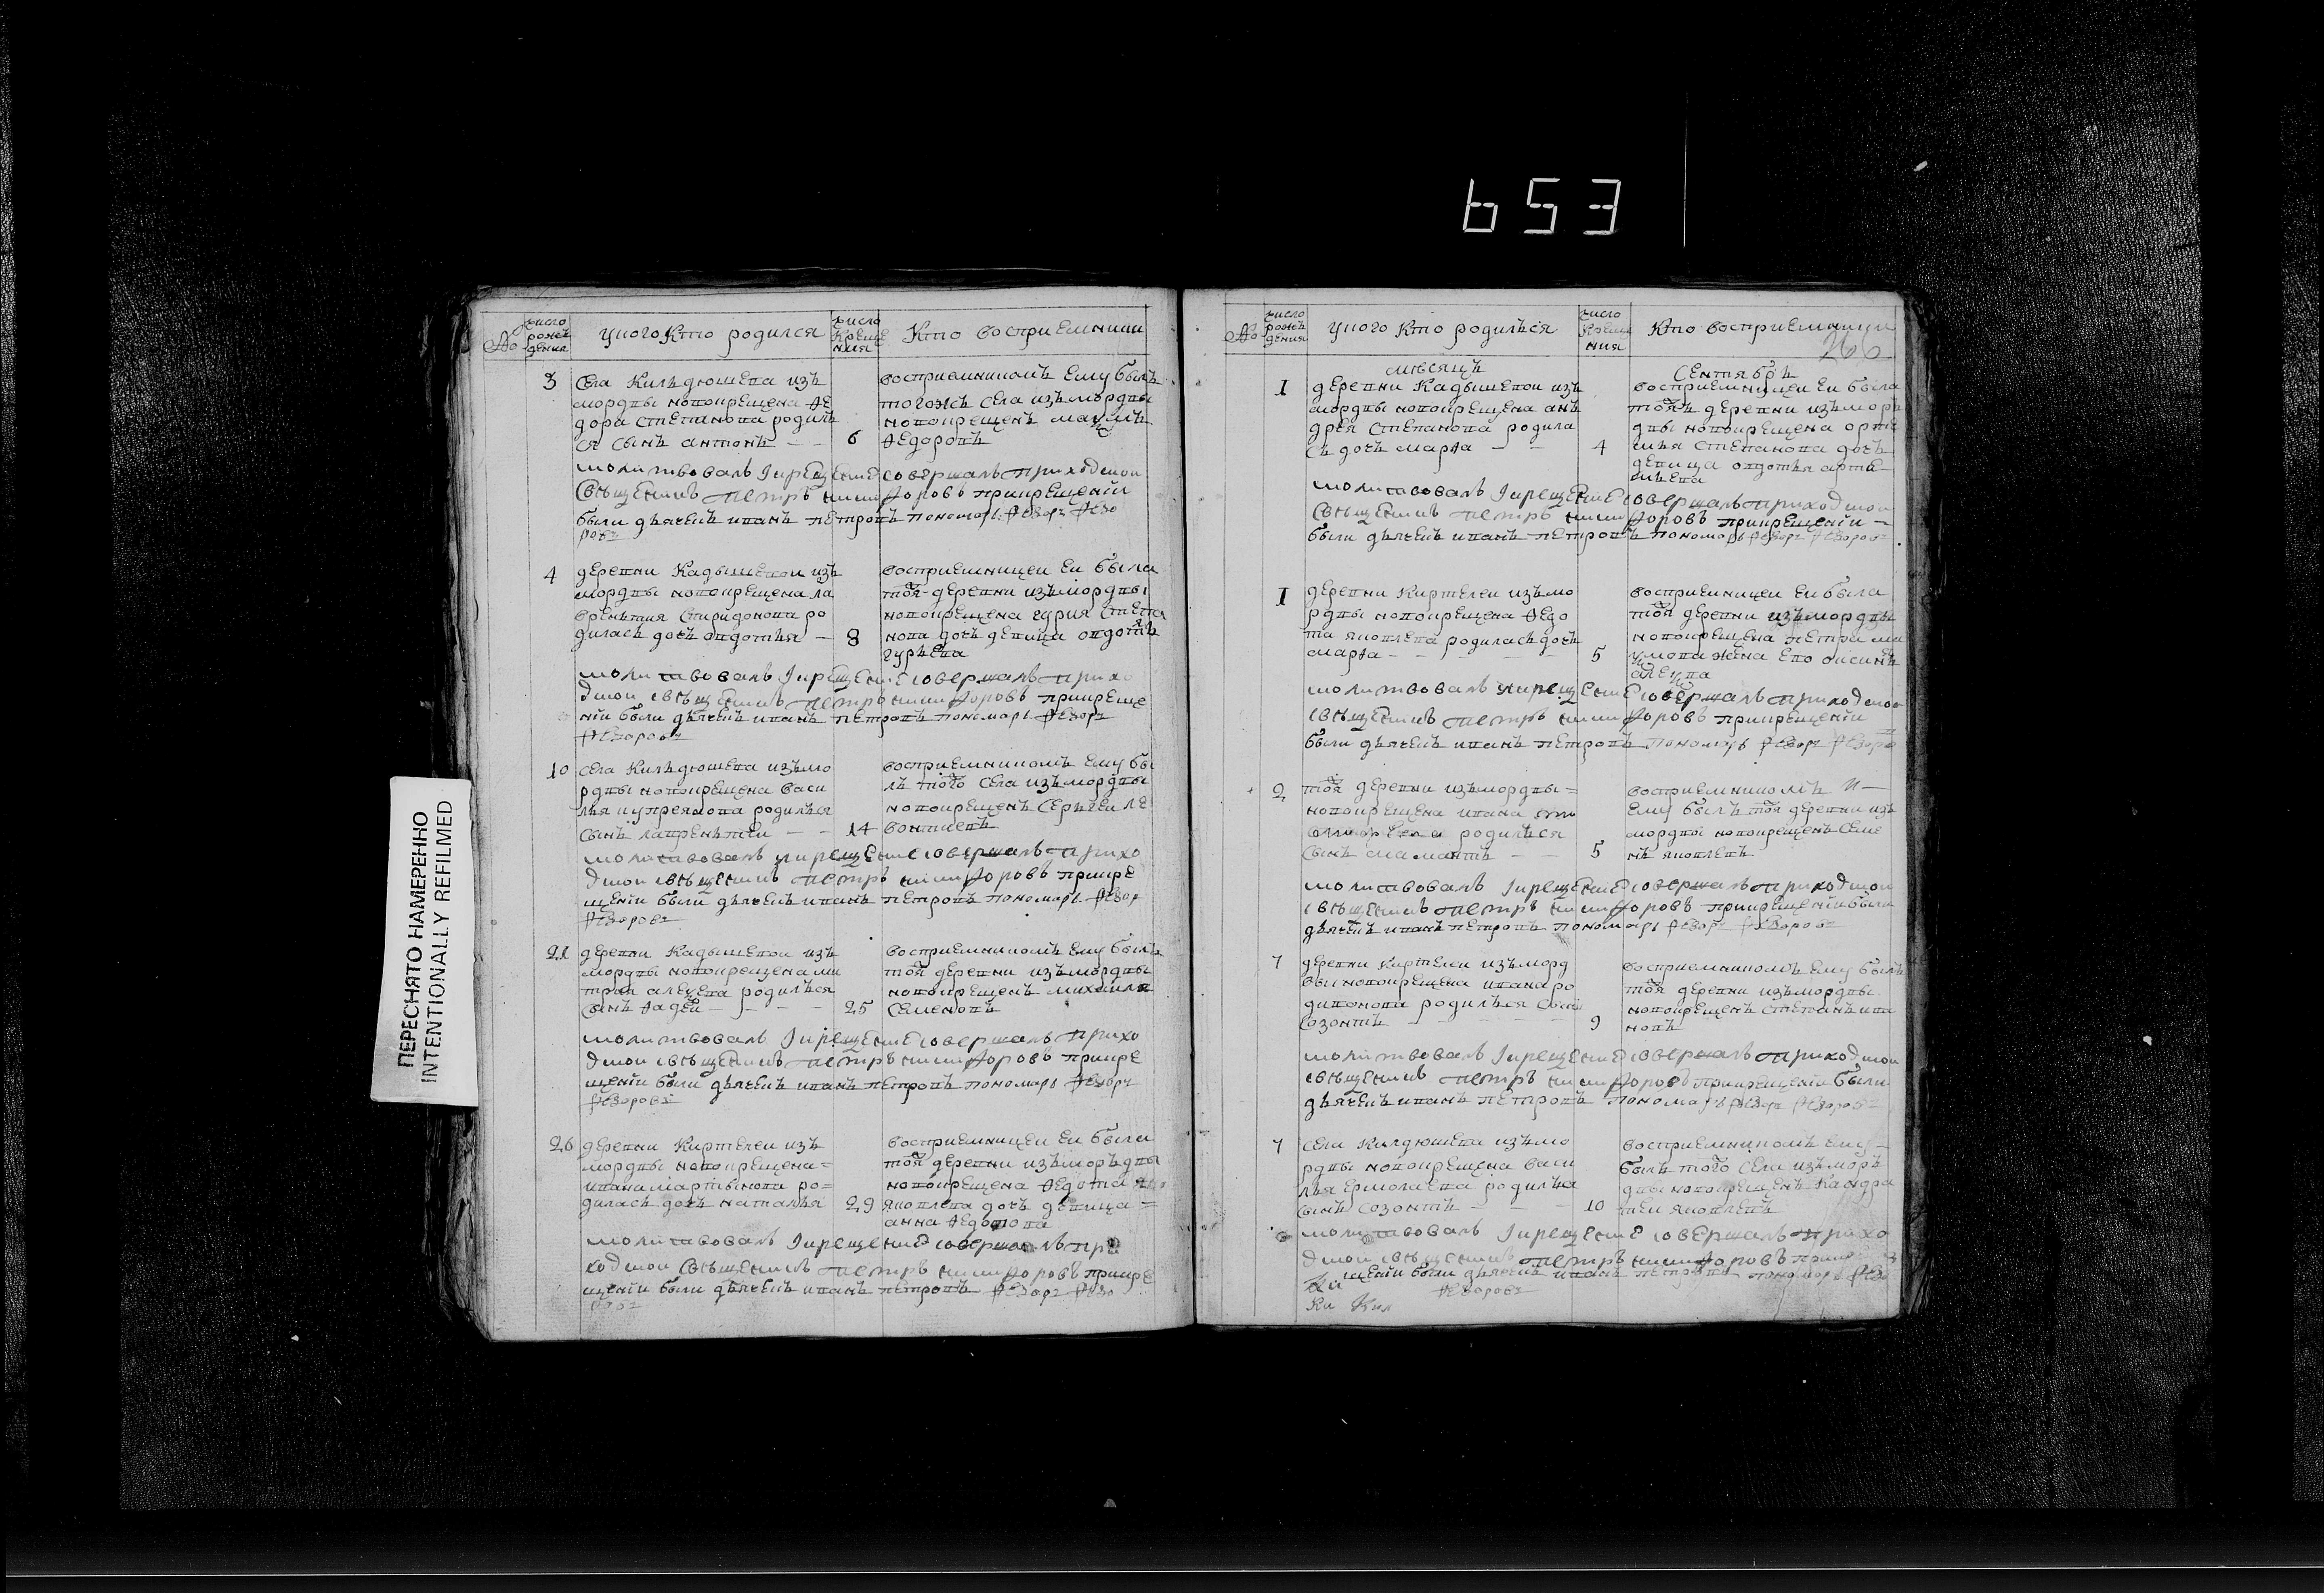 653
ПЕРЕСНЯТО НАМЕРЕННО
INTENTIONALLY REFILMED
№
число рождения
у ково кто родился
число крещения
кто восприемники
3
села Кильдюшева изъ
мордвы новокрещена Фе
дора Степанова родилъ
ся сынъ антонъ
6
восприемникомъ ему былъ
тогожъ села изъ мордвы
новокрещенъ
Федоровъ
молитвовалъ и крещение совершалъ приходской
священникъ Петръ Никифоровъ при крещении
были дьячекъ иванъ петровъ пономарь Федоръ Федо
ровъ
4
деревни Кадышевой изъ
мордвы новокрещена ла
врентия Спиридонова ро
дилась дочь овдотья
8
восприемницей ей была
тоя деревни изъ мордвы
новокрещена гурия Степа
нова дочь девица овдотья
гурьева
молитвовалъ и крещение совершалъ прихо
дской священникъ Петръ Никифоровъ при креще
нии были дьячекъ иванъ петровъ пономарь Федоръ
Федоровъ
10
села Кильдюшева изъ мо
рдвы новокрещена васи
лья куприянова родилься
сынъ лаврентей
14
восприемникомъ ему бы
лъ того села изъ мордвы
новокрещенъ Сергей ле
вонтиевъ
молитвовалъ и крещение совершалъ прихо
дской священникъ Петръ Никифоровъ при кре
щении были дьячекъ иванъ петровъ пономарь Федор
Федоровъ
21
деревни Кадышевой изъ
мордвы новокрещена ми
трия родилься
сынъ Фадей
25
восприемникомъ ему былъ
тоя деревни изъ мордвы
новокрещенъ михаила
Семеновъ
молитвовалъ и крещение совершалъ прихо
дской священникъ Петръ Никифоровъ при кре
щении были дьячекъ иванъ петровъ пономарь Федоръ
Федоровъ
26
деревни Киртелей изъ
мордвы новокрещена
ивана мартынова ро
дилась дочь наталья
29
восприемницей ей была
тоя деревни изъ моръдвы
новокрещена Федота
яковлева дочь девица
анна Федотова
молитвовалъ и крещение совершалъ при
ходской священникъ Петръ Никифоровъ при кре
щении были дьячекъ иванъ петровъ Федоръ Федо
ровъ
№
число рождения
у ково кто родилъся
число крещения
кто восприемники
266
месяцъ
Сентябрь
1
деревни Кадышевой изъ
мордвы новокрещена анъ
дрея Степанова родила
сь дочь марфа
4
восприемницей ей была
тояъ деревни изъ мор
двы новокрещена арте
мья Степанова дочь
девица овдотья арте
мьева
молитвовалъ и крещение совершалъ приходской
священникъ Петръ Никифоровъ при крещении
были дьячекъ иванъ петровъ пономарь Федоръ Федоровъ
1
деревни Киртелей изъ мо
рдвы новокрещена Федо
та яковлева родилась дочь
марфа
5
восприемницей ей была
тоя деревни изъ мордвы
новокрещена петра
жена ево
молитвовалъ и крещение совершалъ приходской
священникъ Петръ Никифоровъ при крещении
были дьячекъ иванъ петровъ пономарь Федоръ Федоро
2
тоя деревни изъ мордвы
новокрещена ивана
родилься
сынъ мамантъ
5
восприемникомъ
ему былъ тоя деревни изъ
мордвы новокрещенъ Семе
нъ яковлевъ
молитвовалъ и крещение совершалъ приходской
священникъ Петръ Никифоровъ при крещении были
дьячекъ иванъ петровъ пономарь Федоръ Федоровъ
7
деревни Киртелей изъ морд
вы новокрещена ивана ро
дионова родилься сынъ
Созонтъ
9
восприемникомъ ему былъ
тоя деревни изъ мордвы
новокрещенъ Степанъ ива
новъ
молитвовалъ и крещение совершалъ приходской
священникъ Петръ Никифоровъ при крещении были
дьячекъ иванъ петровъ пономарь Федоръ Федоровъ
7
села Килдюшева изъ мо
рдвы новокрещена васи
лья Ермолаева родилься
сынъ Созонтъ
10
восприемникомъ ему
былъ того села изъ моръ
двы новокрещенъ Кандра
тей яковлевъ
молитвовалъ и крещение совершалъ прихо
дской священникъ Петръ Никифоровъ при кре
щении были дьячекъ иванъ петровъ пономарь Федо
Федоровъ